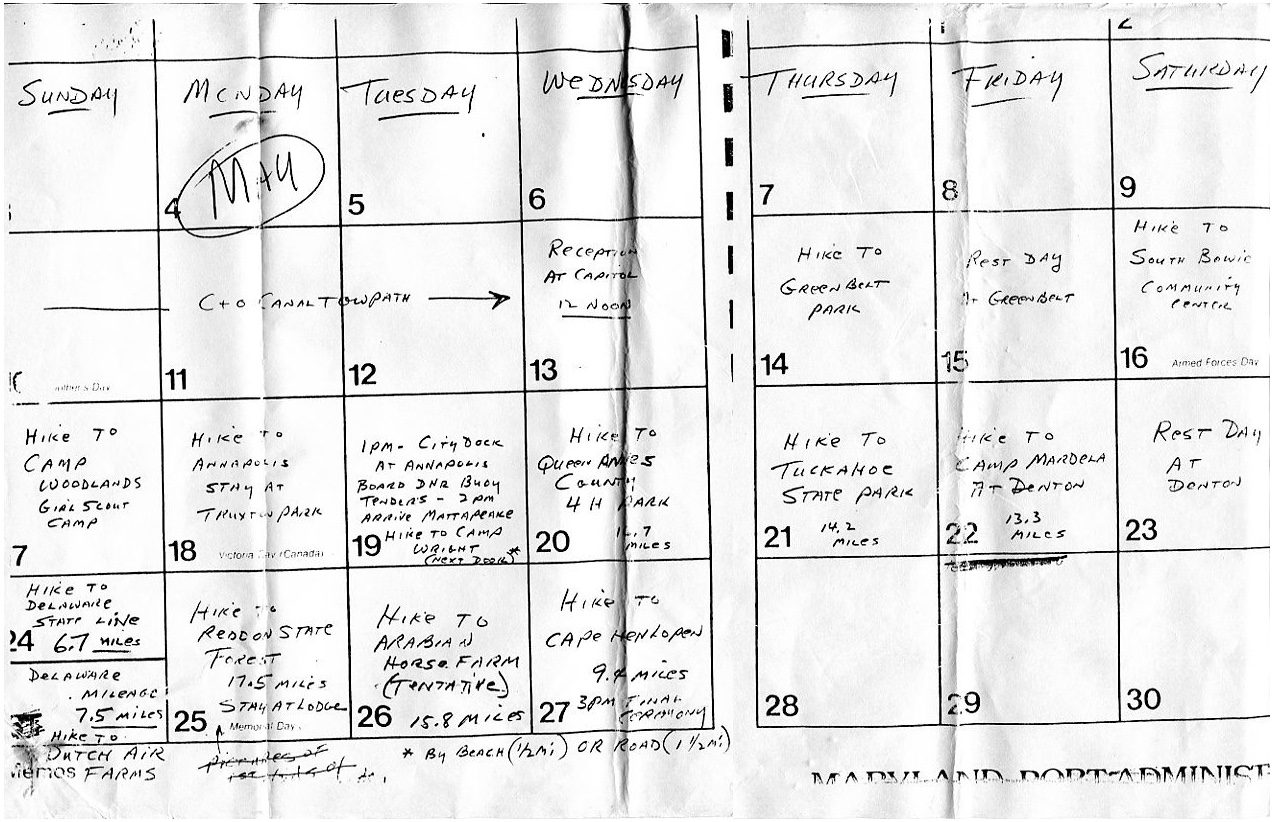 2
SUNDAY
MONDAY
TUESDAY
WEDNESDAY
THURSDAY
FRIDAY
SATURDAY
MAY
4
5
6
7
8
9
C+O CANAL TOWPATH
RECEPTION
AT CAPITOL
12 NOON
HIKE TO
GREENBELT
PARK
REST DAY
AT GREENBELT
HIKE TO
SOUTH BOWIE
COMMUNITY
CENTER
11
12
13
14
15
16 Armed Forces Day
HIKE TO
CAMP
WOODLANDS
GIRL SCOUT
CAMP
7
HIKE TO
ANNAPOLIS
STAY AT
TRUXTUN PARK
18 Victoria Day (Canada)
1PM- CITY DOCK
AT ANNAPOLIS
BOARD DNR BUOY
TENDERS - 2PM
ARRIVE MATTAPEAKE
HIKE TO CAMP
WRIGHT *
(NEXT DOOR)
19
HIKE TO
QUEEN ANNES
COUNTY
4 H PARK
20
MILES
HIKE TO
TUCKAHOE
STATE PARK
21 14.2
MILES
HIKE TO
CAMP MARDELA
AT DENTON
22 13.3
MILES
REST DAY
AT
DENTON
23
HIKE TO
DELAWARE
STATE LINE
24 6.7 MILES
DELAWARE
MILEAGE
7.5 MILES
HIKE TO
DUTCH AIR
FARMS
HIKE TO
REDDON STATE
FOREST
17.5 MILES
STAY AT LODGE
25 Memorial Day
HIKE TO
ARABIAN
HORSE FARM
(TENTATIVE)
26 15.8 MILES
HIKE TO
CAPE HENLOPEN
9.4 MILES
3PM FINAL
CERMONY
27
28
29
30
* BY BEACH (1/2 Mi) OR ROAD (1 1/2 Mi)
MARYLAND PORT ADMINIS